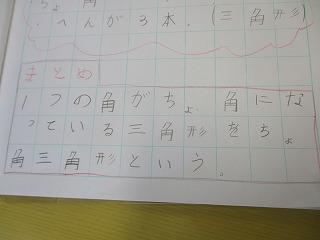 ちょ 角
・へんが3本.(三角形)
まとめ
1つの角がちょ 角にな
っている三角形をちょ
角三角形という。